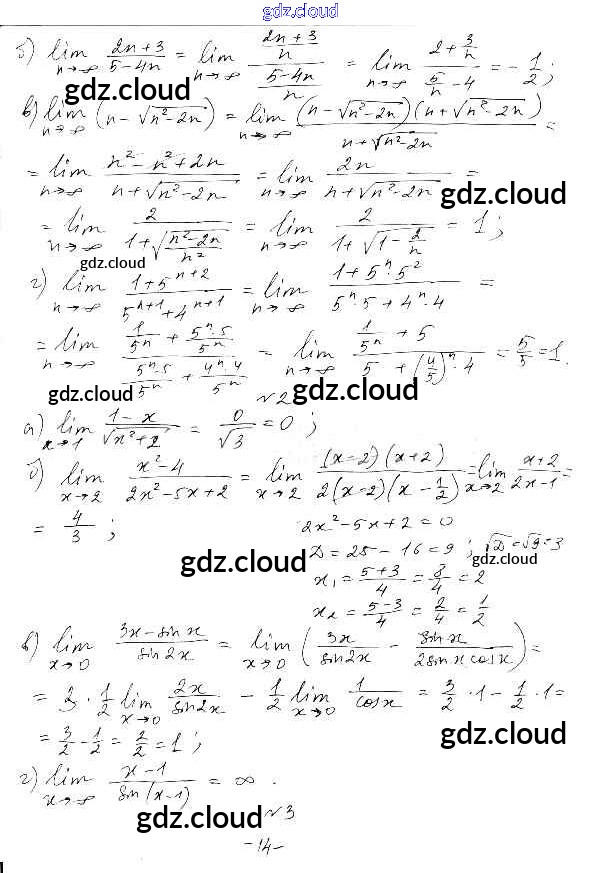 gdz.cloud
б) lim n→∞ (2n+3)/(5-4n) = lim n→∞ ((2n+3)/n)/((5-4n)/n) = lim n→∞ (2+3/n)/(5/n-4) = -1/2;
gdz.cloud gdz.cloud
в) lim n→∞ (n-√(n²-2n)) = lim n→∞ (n-√(n²-2n))(n+√(n²-2n))/(n+√(n²-2n)) =
= lim n→∞ (n²-n²+2n)/(n+√(n²-2n)) = lim n→∞ 2n/(n+√(n²-2n)) =
gdz.cloud
= lim n→∞ 2/(1+√((n²-2n)/n²)) = lim n→∞ 2/(1+√(1-2/n)) = 1;
gdz.cloud
г) lim n→∞ (1+5ⁿ⁺²)/(5ⁿ⁺¹+4ⁿ⁺¹) = lim n→∞ (1+5ⁿ·5²)/(5ⁿ·5+4ⁿ·4) =
= lim n→∞ (1/5ⁿ+5ⁿ·5/5ⁿ)/(5ⁿ·5/5ⁿ+4ⁿ·4/5ⁿ) = lim n→∞ (1/5ⁿ+5)/(5+(4/5)ⁿ·4) = 5/5 = 1.
gdz.cloud gdz.cloud
№2
а) lim x→1 (1-x)/√(x²+2) = 0/√3 = 0;
б) lim x→2 (x²-4)/(2x²-5x+2) = lim x→2 (x-2)(x+2)/(2(x-2)(x-1/2)) = lim x→2 (x+2)/(2x-1) =
= 4/3;
2x²-5x+2=0
D=25-16=9; √D=√9=3
gdz.cloud gdz.cloud
x₁=(5+3)/4=8/4=2
x₂=(5-3)/4=2/4=1/2
в) lim x→0 (3x-sinx)/sin2x = lim x→0 (3x/sin2x - sinx/(2sinxcosx)) =
= 3·1/2 lim x→0 2x/sin2x - 1/2 lim x→0 1/cosx = 3/2·1-1/2·1=
= 3/2-1/2=2/2=1;
gdz.cloud gdz.cloud
г) lim x→∞ (x-1)/sin(x-1) = ∞.
№3
gdz.cloud
-14-